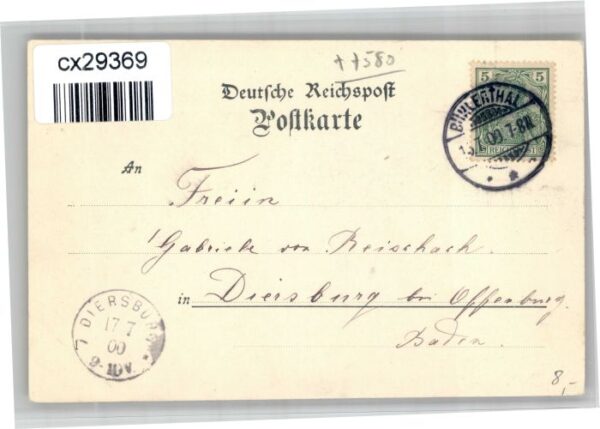 cx29369
77580
Deutsche Reichspost
Postkarte
5 5
REICHSPOST
BÜHLERTHAL
7-8N.
An
Freiin
Gabriele von Reischach.
in Diersburg bei Offenburg.
Baden.
DIERSBURG
17 7
00
9-10V.
8,-